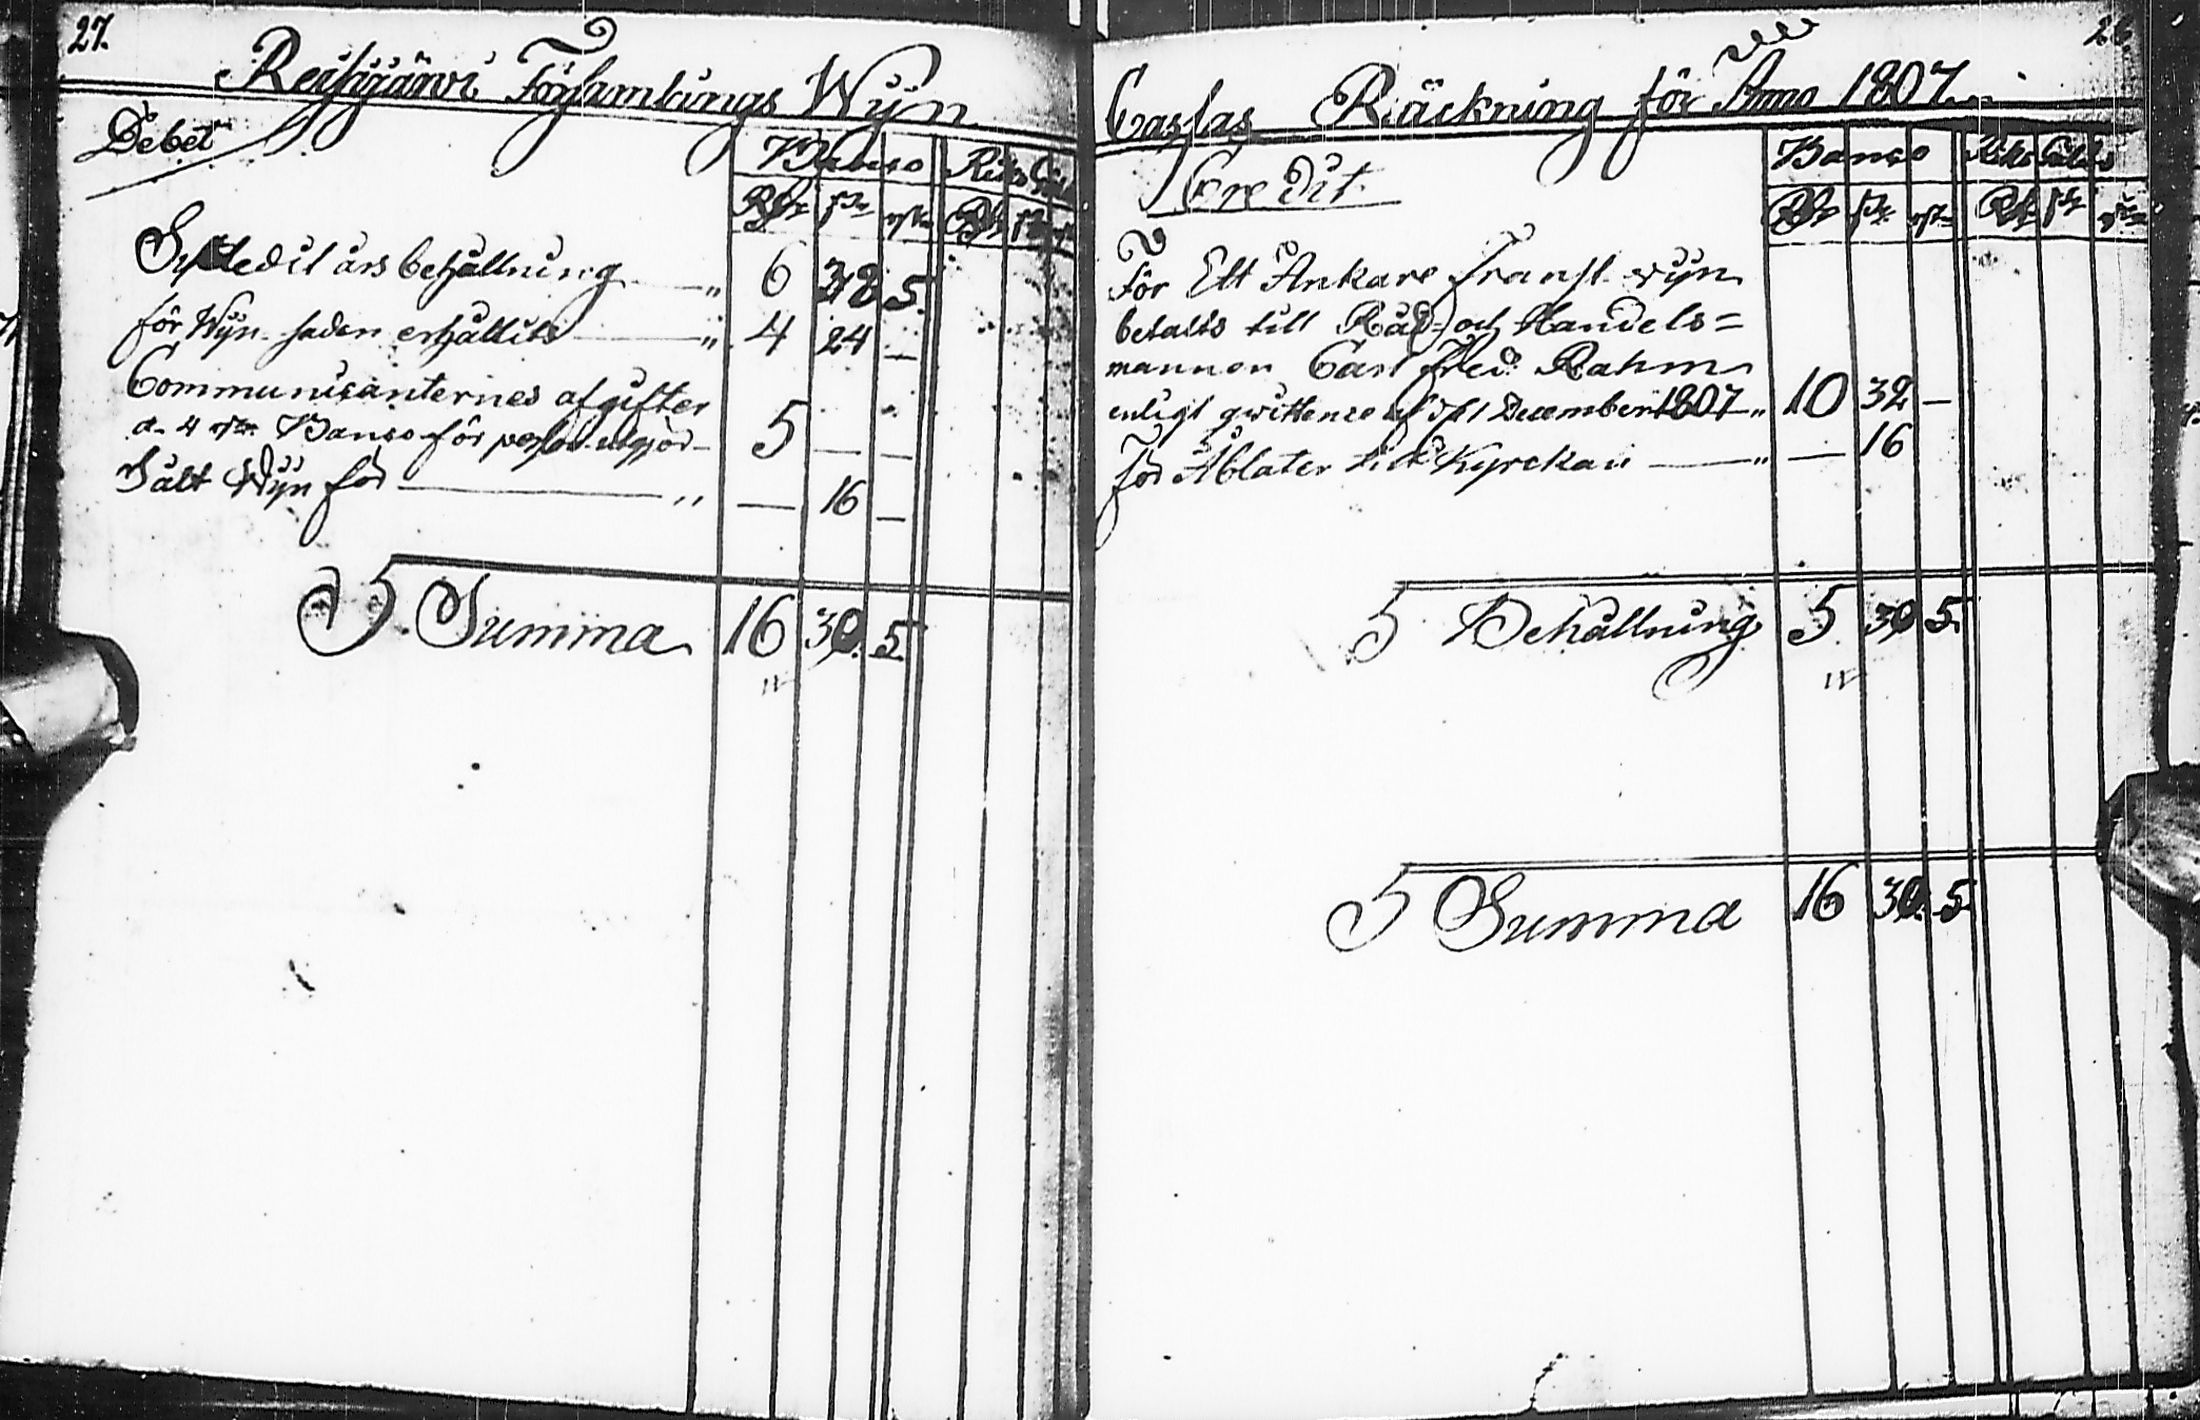 27.
Reisjärvi Församlings Wijn
Debet
Banco Riks Gäld
Rdr sk rst Rdr sk
Sistledit års behållning " 6 38 5.
för Wijn saden erhållits " 4 24 —
Communicanternes afgifter
a 4 rst. Banco för person utgjör 5 — —
Sålt Wijn för " — 16 —
Summa 16 30. 5.
Cassas Räckning för Anno 1807.
Credit.
Banco Riks Gälds
Rdr sk rst Rdr sk rst
För Ett Ankare Fransk wijn
betalts till Råd- och Handels=
mannen Carl Fred. Rahm
enligt qwittence af d. 1 December 1807 " 10 32 —
för Åblater till Kyrckan " — 16
Behållning 5 30 5.
Summa 16 30. 5.